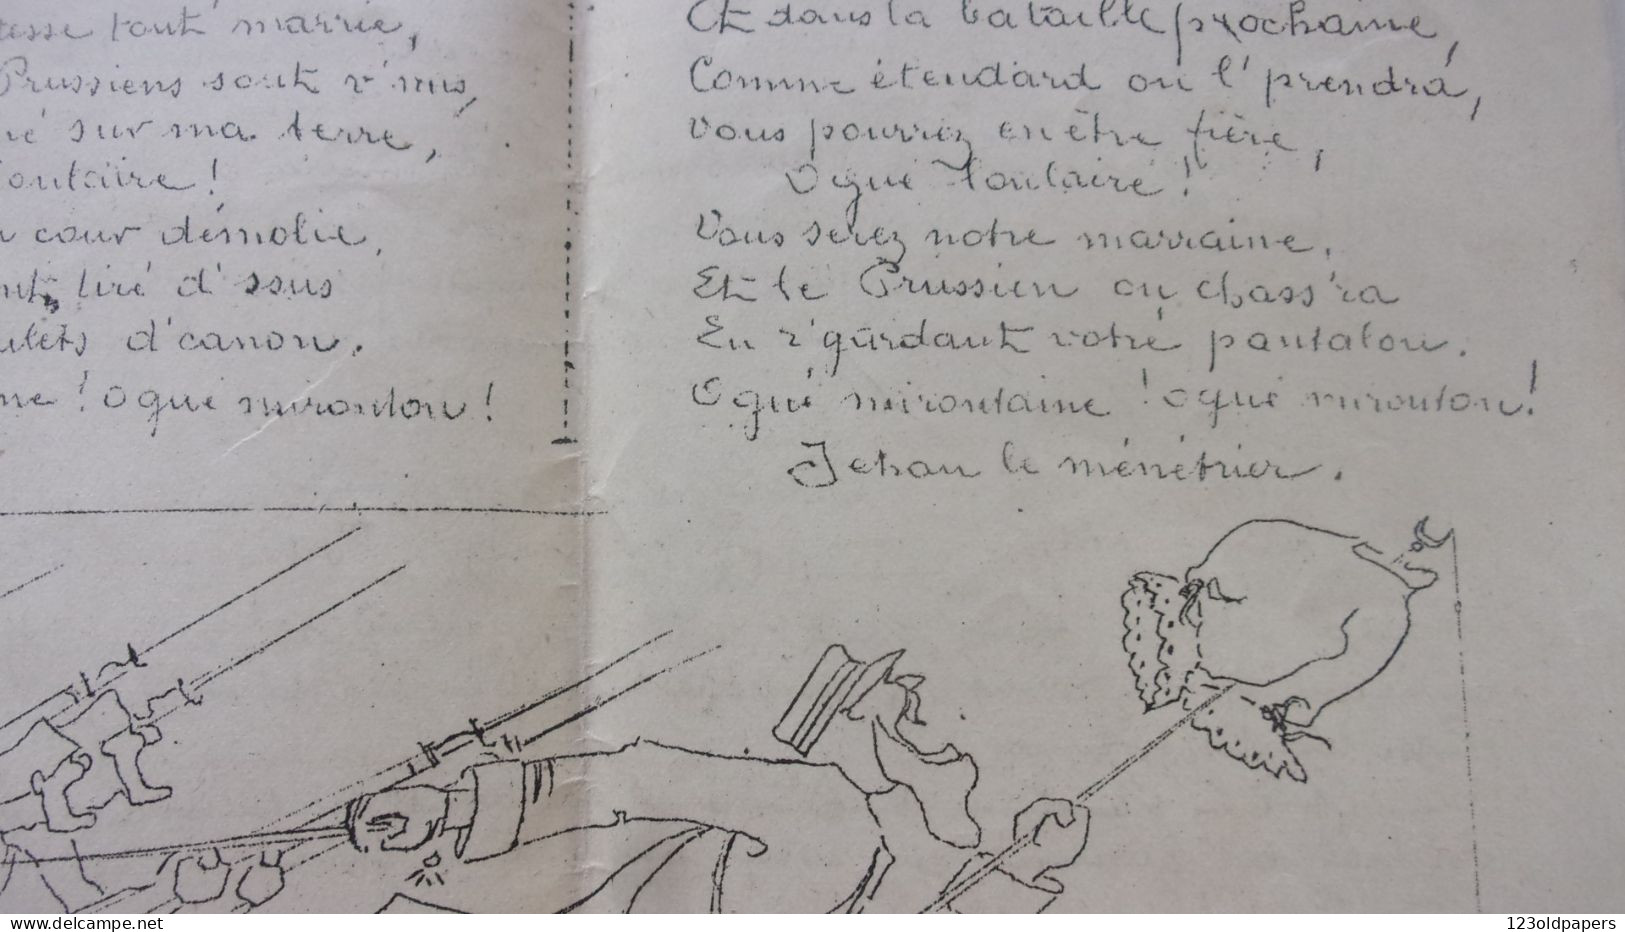 tesse tout marrie,
Prussiens sont v'nus,
né sur ma terre,
Tontaire !
cour démolie,
ont tiré d'ssus
ulets d'canon.
ne ! O gué mironton !
Et dans la bataille prochaine,
Comme étendard on l'prendra,
Vous pourrez en être fière,
O gué Tontaire !
Vous serez notre marraine,
Et le Prussien on chass'ra
En r'gardant votre pantalon.
O gué mirontaine ! O gué mironton !
Jehan le ménétrier.
123oldpapers